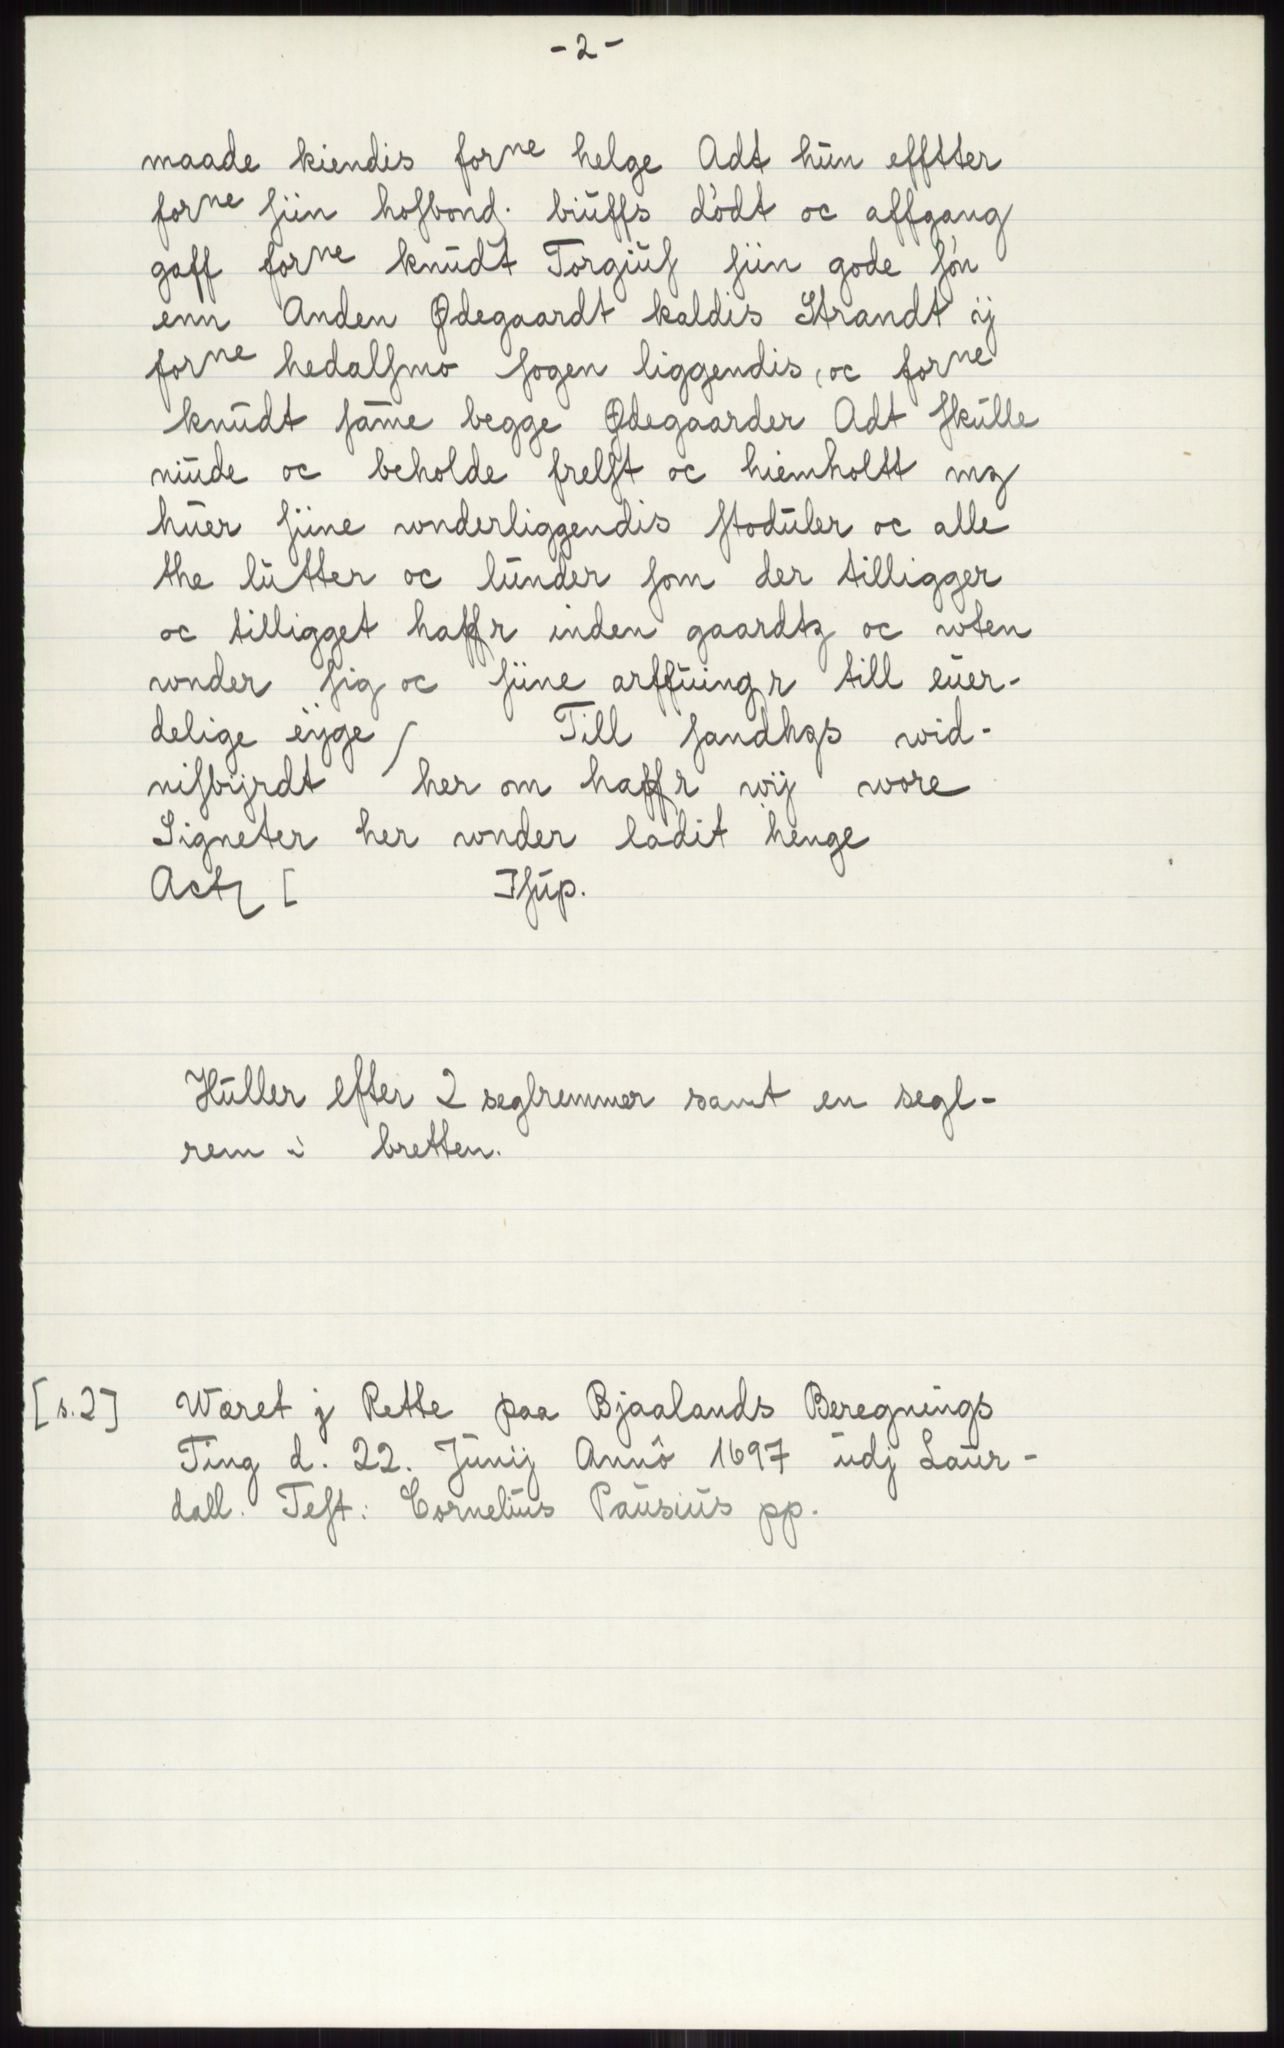 - 2 -
maade kiendis forne helge Adt hŭn efftter
forne ſiin hoſbond. biŭffs dödt oc affgang
gaff forne knŭdt Torgiŭſ ſiin gode ſön
enn Anden Ødegaardt kaldis Strandt ij
forne hedalſmo ſogen liggendis, oc forne
knŭdt ſame begge Ødegaarder Adt ſkŭlle
niŭde oc beholde frelſt oc hiemholtt mz
hŭer ſiine wnderliggendis ſtodŭler oc alle
the lŭtter oc lŭnder ſom der tilligger
oc tilligget haffr inden gaardtz oc wten
wnder ſig oc ſiine arffŭingr till eŭer-
delige eÿge / Till ſandhgs wid-
niſbÿrdt her om haffr wÿ wore
Signeter her wnder ladit henge
Actz [ Iſŭp.
Hŭller efter 2 seglremmer samt en segl-
rem i bretten.
[s.2] Wæret j Rette paa Bjaalands Beregnings
Ting d. 22. Jŭnij Annô 1697 ŭdj Laŭr-
dall. Teſt: Corneliŭs Paŭsiŭs pp.